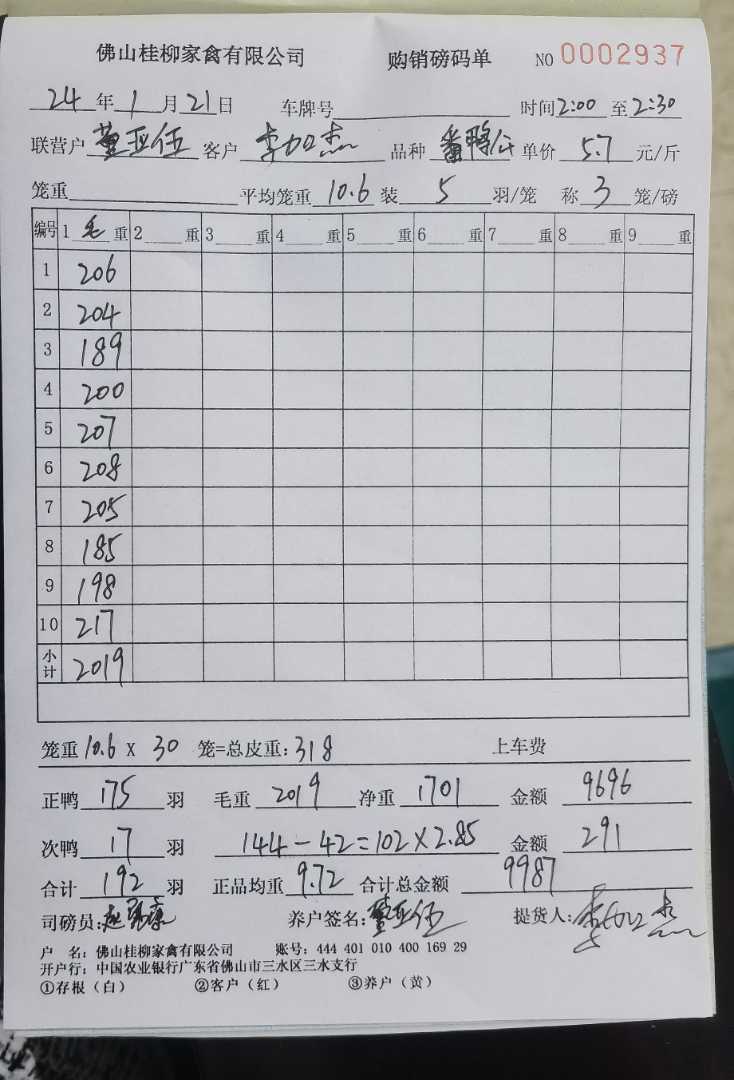 佛山桂柳家禽有限公司 购销磅码单 NO 0002937
24年1月21日 车牌号 时间2:00至2:30
联营户董亚伍客户李加杰 品种番鸭公单价5.7元/斤
笼重 平均笼重10.6装5羽/笼 称3笼/磅
编号 1毛重 2 重 3 重 4 重 5 重 6 重 7 重 8 重 9 重
1 206
2 204
3 189
4 200
5 207
6 208
7 205
8 185
9 198
10 217
小计 2019
笼重10.6 X 30 笼=总皮重:318 上车费
正鸭175羽 毛重2019净重1701 金额9696
次鸭17羽 144-42=102×2.85 金额291
合计192羽 正品均重9.72合计总金额9987
司磅员: 养户签名:董亚伍 提货人:李加杰
户 名:佛山桂柳家禽有限公司 账号:444 401 010 400 169 29
开户行:中国农业银行广东省佛山市三水区三水支行
①存根(白) ②客户(红) ③养户(黄)